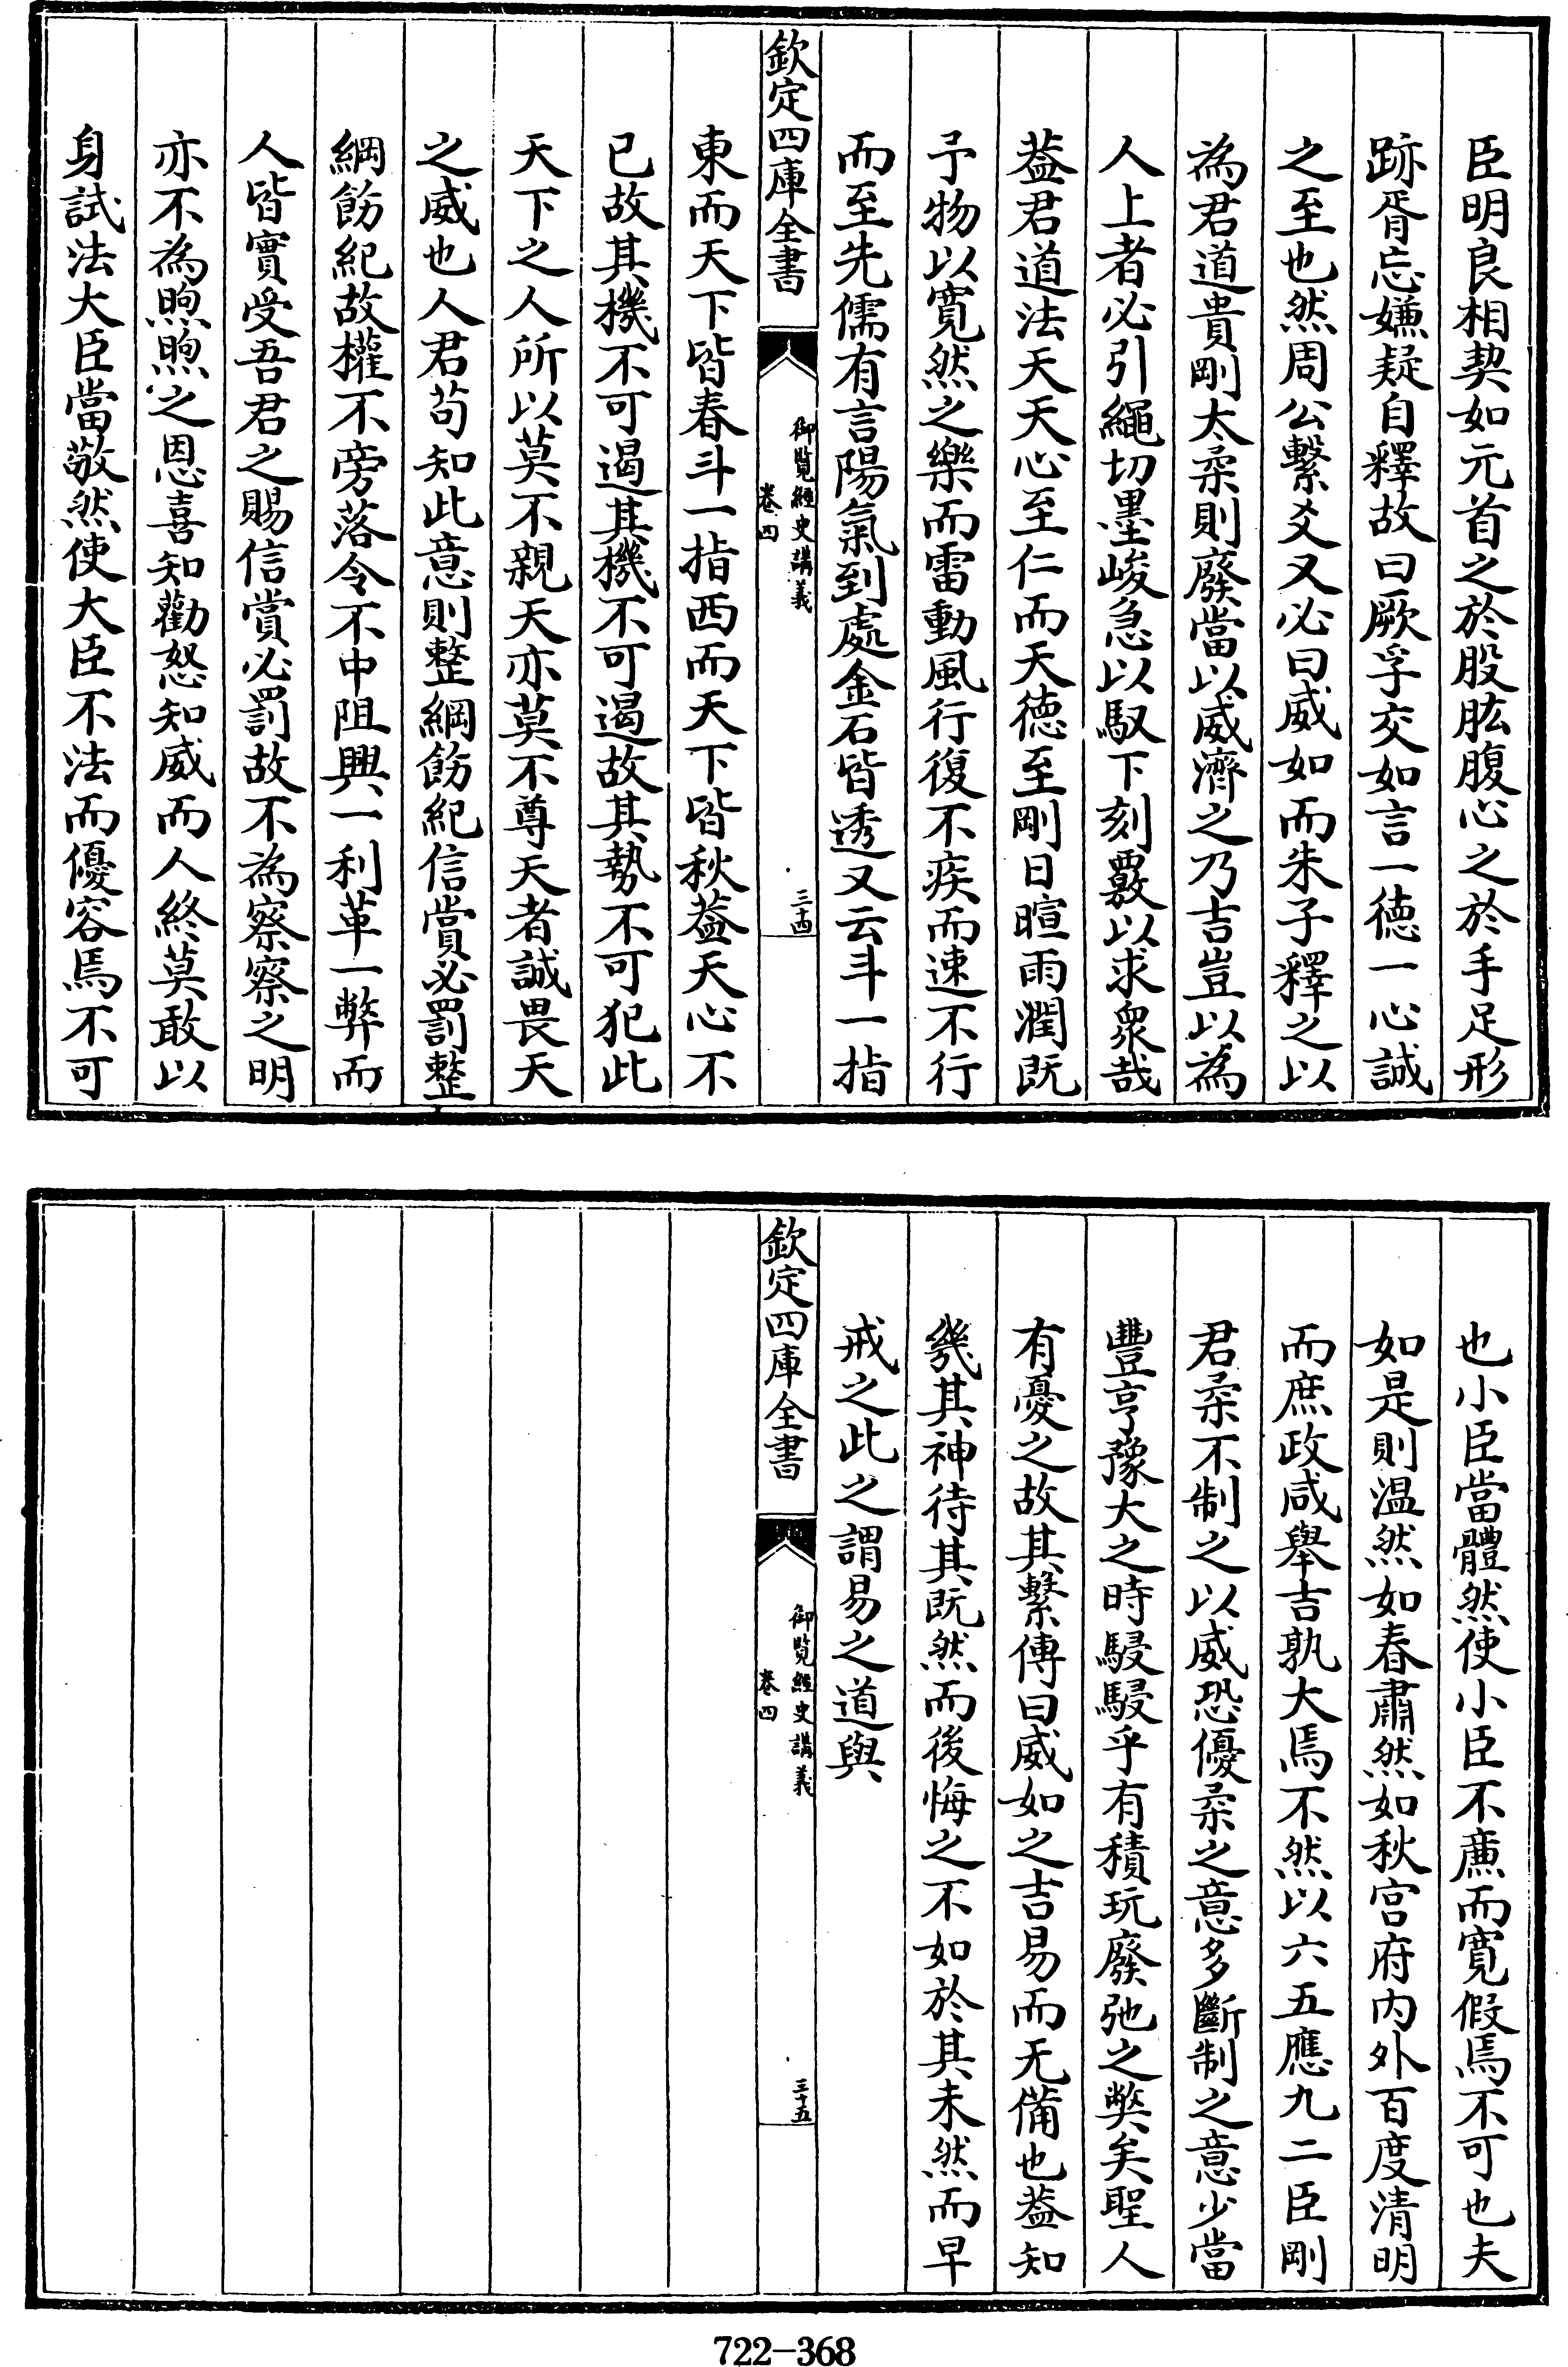 臣明良相契如元首之於股肱腹心之於手足形
跡胥忘嫌疑自釋故曰厥孚交如言一徳一心誠
之至也然周公繫爻又必曰威如而朱子釋之以
為君道貴剛太柔則廢當以威濟之乃吉豈以為
人上者必引繩切墨峻急以馭下刻覈以求衆哉
葢君道法天天心至仁而天徳至剛日暄雨潤既
予物以寛然之樂而雷動風行復不疾而速不行
而至先儒有言陽氣到處金石皆透又云斗一指
欽定四庫全書
御覧經史講義
卷四
三十四
東而天下皆春斗一指西而天下皆秋葢天心不
已故其機不可遏其機不可遏故其勢不可犯此
天下之人所以莫不親天亦莫不尊天者誠畏天
之威也人君苟知此意則整綱飭紀信賞必罰整
綱飭紀故權不旁落令不中阻興一利革一弊而
人皆實受吾君之賜信賞必罰故不為察察之明
亦不為煦煦之恩喜知勸怒知威而人終莫敢以
身試法大臣當敬然使大臣不法而優容焉不可
也小臣當體然使小臣不亷而寛假焉不可也夫
如是則温然如春肅然如秋宫府内外百度清明
而庶政咸舉吉孰大焉不然以六五應九二臣剛
君柔不制之以威恐優柔之意多斷制之意少當
豐亨豫大之時駸駸乎有積玩廢弛之弊矣聖人
有憂之故其繫傳曰威如之吉易而无備也葢知
幾其神待其既然而後悔之不如於其未然而早
戒之此之謂易之道與
欽定四庫全書
御覧經史講義
卷四
三十五
722-368